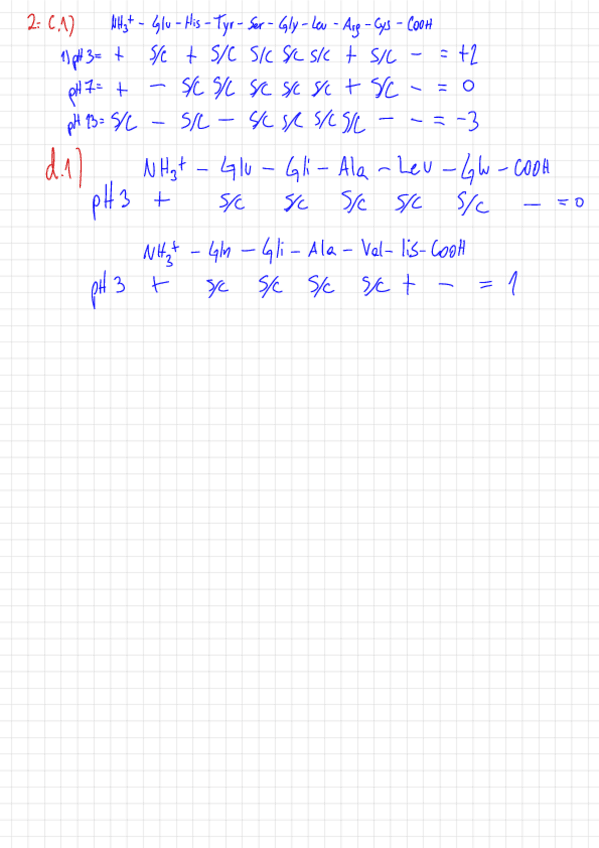 2: C.1) NH3+ - Glu - His - Tyr - Ser - Gly - Leu - Arg - Cys - COOH
1) pH 3 = + S/C + S/C S/C S/C S/C + S/C - = +2
pH 7 = + - S/C S/C S/C S/C S/C + S/C - = 0
pH 13 = S/C - S/C - S/C S/C S/C S/C - - = -3
d.1) NH3+ - Glu - Gli - Ala - Leu - Glu - COOH
pH 3 + S/C S/C S/C S/C S/C - = 0
NH3+ - Gln - Gli - Ala - Val - lis - COOH
pH 3 + S/C S/C S/C S/C + - = 1